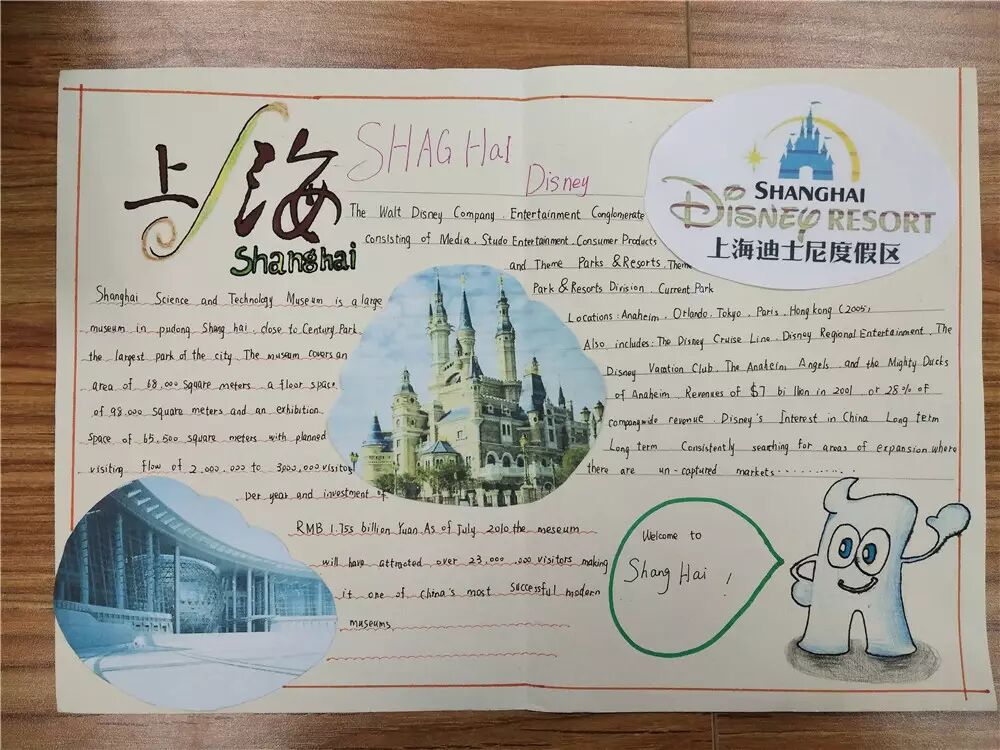 上海
Shanghai
SHAG Hai
Disney
The Walt Disney Company . Entertainment Conglomerate
consisting of Media . Studo Entertainment . Consumer Products
and Theme Parks & Resorts . Theme
Park & Resorts Division . Current Park
Locations : Anaheim . Orlando . Tokyo . Paris . Hong kong (2005),
Also includes : The Disney Cruise Line . Disney Regional Entertainment . The
Disney Vacation Club . The Anaheim Angels . and the Mighty Ducks
of Anaheim . Revenues of $7 billion in 2001 . or 28% of
companywide revenue . Disney's Interest in China Long term
Long term Consistently searching for areas of expansion where
there are un-captured markets ............
SHANGHAI
DISNEY RESORT
上海迪士尼度假区
Shanghai Science and Technology Museum is a large
museum in pudong Shang hai , close to Century Park .
the largest park of the city . The museum covers an
area of 68.000 square meters . a floor space
of 98.000 square meters and an exhibition
space of 65,500 square meters with planned
visiting flow of 2.000.000 to 3,000,000 visitos
per year and investment of
RMB 1.755 billion Yuan . As of July 2010 the meseum
will have attracted over 23,000 ,000 visitors making
it one of China's most successful modern
museums
Welcome to
Shang Hai !